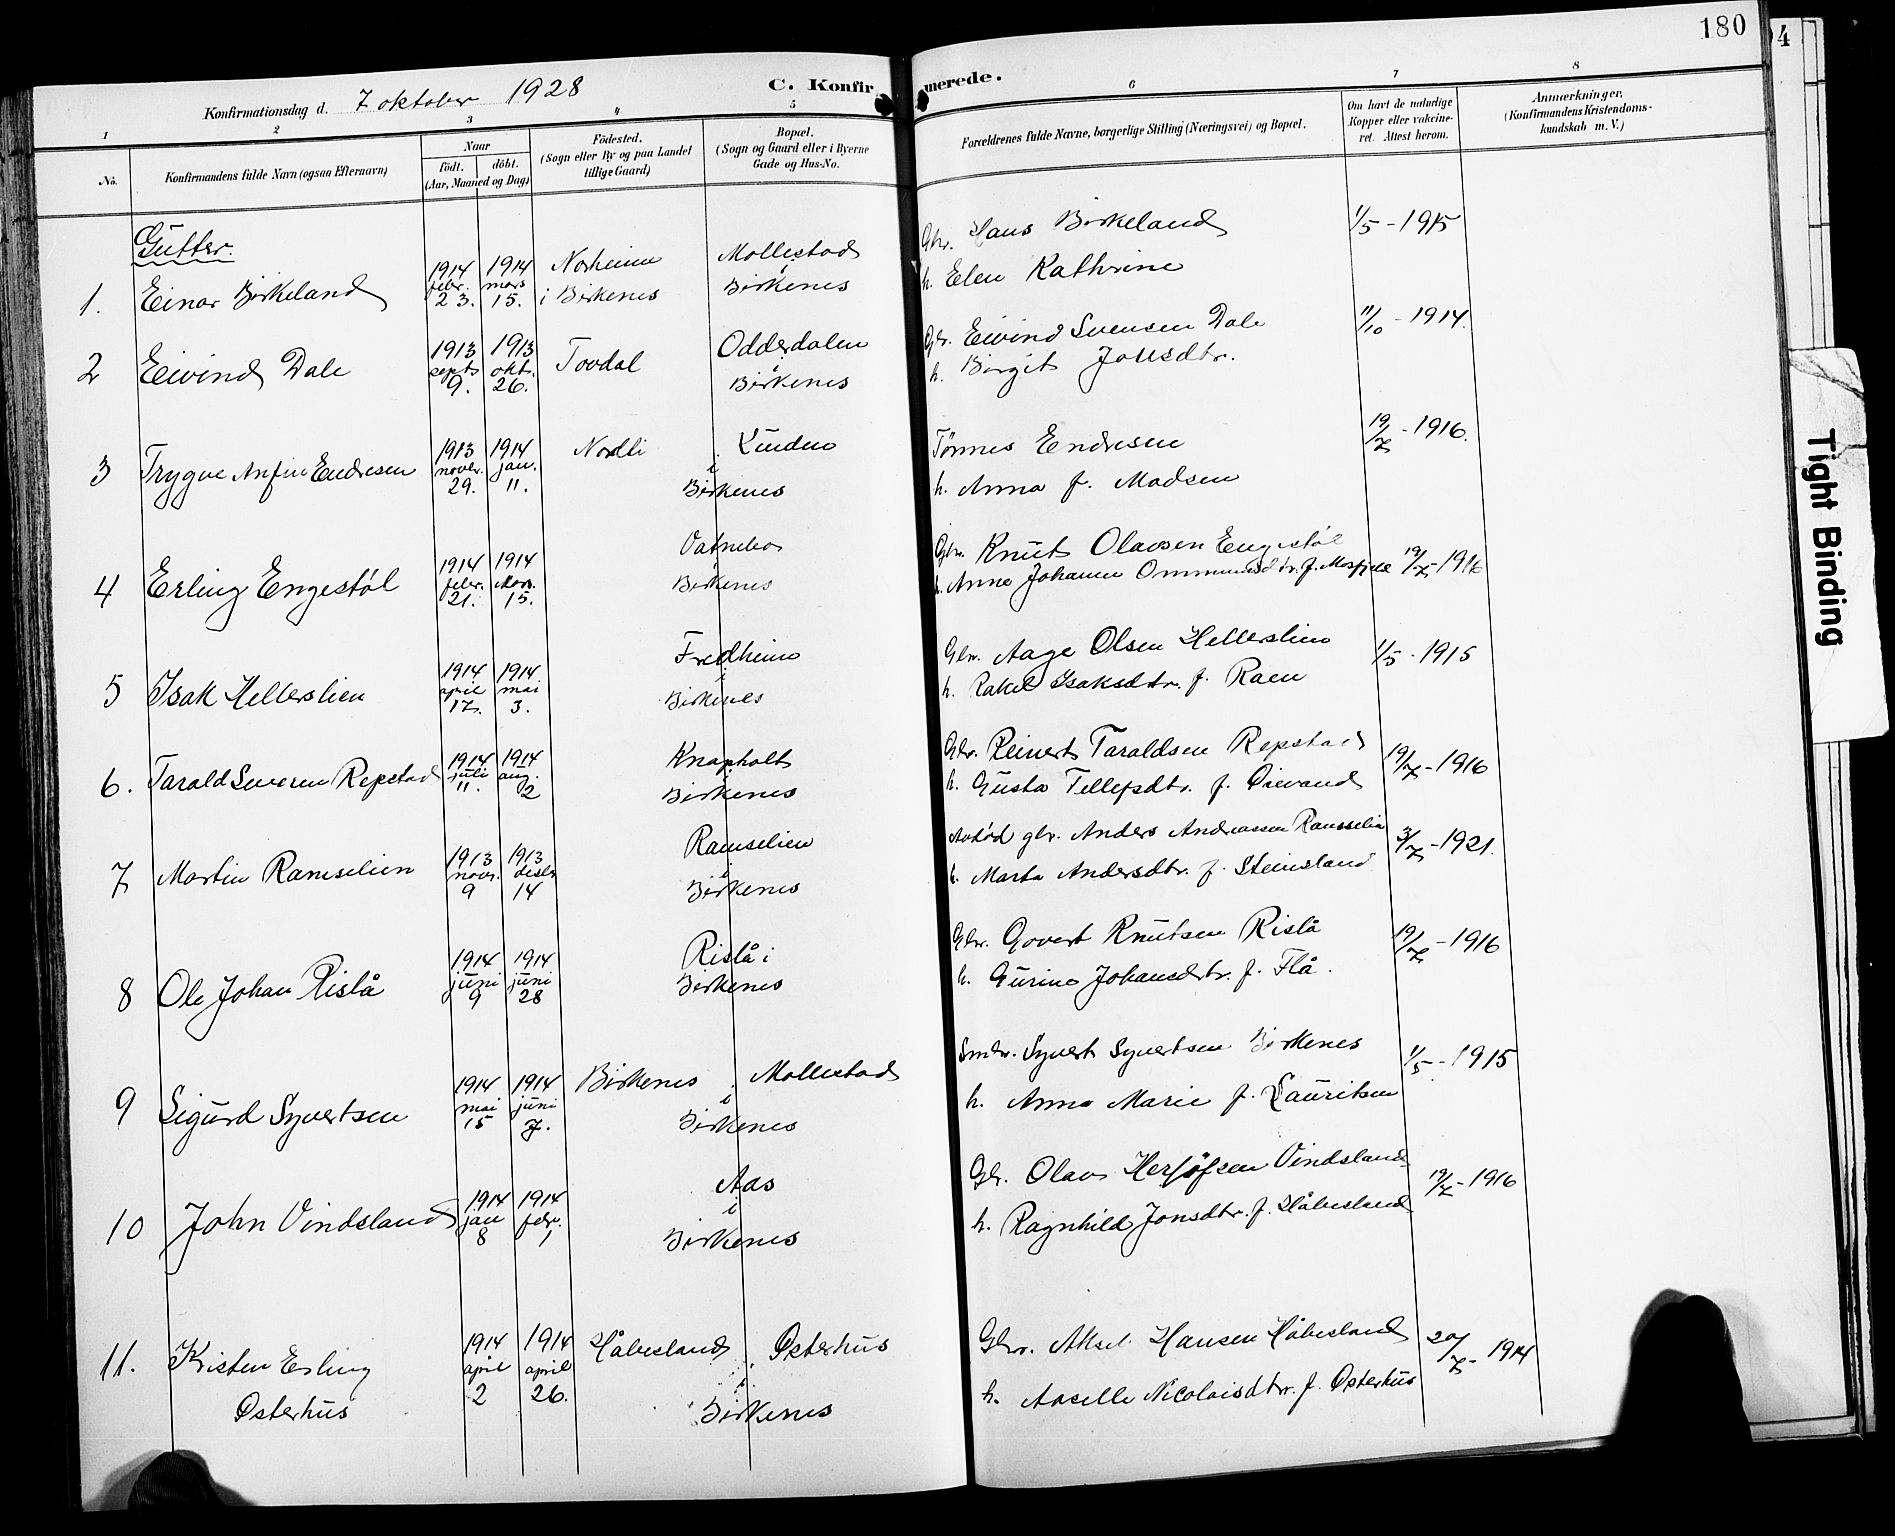 180
4
Konfirmationsdag d. 7 oktober 1928
C. Konfirmerede.
1 2 3 4 5 6 7 8
No.
Konfirmandens fulde Navn (ogsaa Efternavn)
Naar
født. døbt.
(Aar, Maaned og Dag)
Fødested.
(Sogn eller By og paa Landet
tillige Gaard)
Bopæl.
(Sogn og Gaard eller i Byerne
Gade og Hus-No.
Forældrenes fulde Navne, borgerlige Stilling (Næringsvei) og Bopæl.
Om havt de naturlige
Kopper eller vakcine-
ret. Attest herom.
Anmærkninger.
(Konfirmandens Kristendoms-
kundskab m. V.)
Gutter.
1. Einar Birkeland
1914 febr. 23.
1914 mars 15.
Norheim
i Birkenes
Mollestad
i
Birkenes
Gbr. Hans Birkeland
h. Elen Kathrine
1/5 - 1915
2 Eivind Dale
1913 sept. 9.
1913 okt. 26.
Tovdal
Odderdalen
i
Birkenes
Gbr. Eivind Svensen Dale
h. Birgit Jonsdtr.
11/10 - 1914.
3 Trygve Anfin Endresen
1913 novbr. 29.
1914 jan. 11.
Nordli
Linden
i
Birkenes
Tønnes Endresen
h. Anna f. Madsen
19/7 - 1916.
4 Erling Engestøl
1914 febr. 21.
1914 Mars. 15.
Vatnebo
i
Birkenes
Gbr. Knut Olavsen Engestøl
h. Anne Johanne Ommundsdtr. f. Mosfjell
19/7 - 1916
5 Isak Hellerslien
1914 april 17.
1914 mai 3.
Fredheim
i
Birkenes
Gbr. Aage Olsen Hellerslien
h. Rakel Isaksdtr. f. Raen
1/5 - 1915
6. Tarald Severin Repstad
1914 juli 11.
1914 aug. 2
Knapholt
i
Birkenes
Gbr. Reinert Taraldsen Repstad
h. Gusta Tellefsdtr. f. Øievand
19/7 - 1916
7 Martin Ramselien
1913 novr. 9
1913 desbr 14
Ramselien
i
Birkenes
Avdød gbr. Anders Andreassen Ramselia
h. Marta Andersdtr. f. Steinsland
3/7 - 1921.
8 Ole Johan Rislå
1914 juni 9
1914 juni 28
Rislå i
Birkenes
Gbr. Govert Knutsen Rislå
h. Gurine Johansdtr. f. Flå.
19/7 - 1916
9 Sigurd Syvertsen
1914 mai 15
1914 juni 7.
Birkenes
Mollestad
i
Birkenes
Smbr. Syvert Syvertsen Birkenes
h. Anna Marie f. Lauritsen
1/5 - 1915
10 John Vindsland
1914 jan 8
1914 febr. 1
Aas
i
Birkenes
Gbr. Olav Herjufsen Vindsland
h. Ragnhild Jonsdtr. f. Håbesland
19/7 - 1916
11. Kristen Erling
Østerhus
1914 april 2
1914 april 26.
Håbesland
Østerhus
i
Birkenes
Gbr. Aksel Hansen Håbesland
h. Aaselle Nicolaisdtr. f. Østerhus
20/7 - 1914
Tight Binding